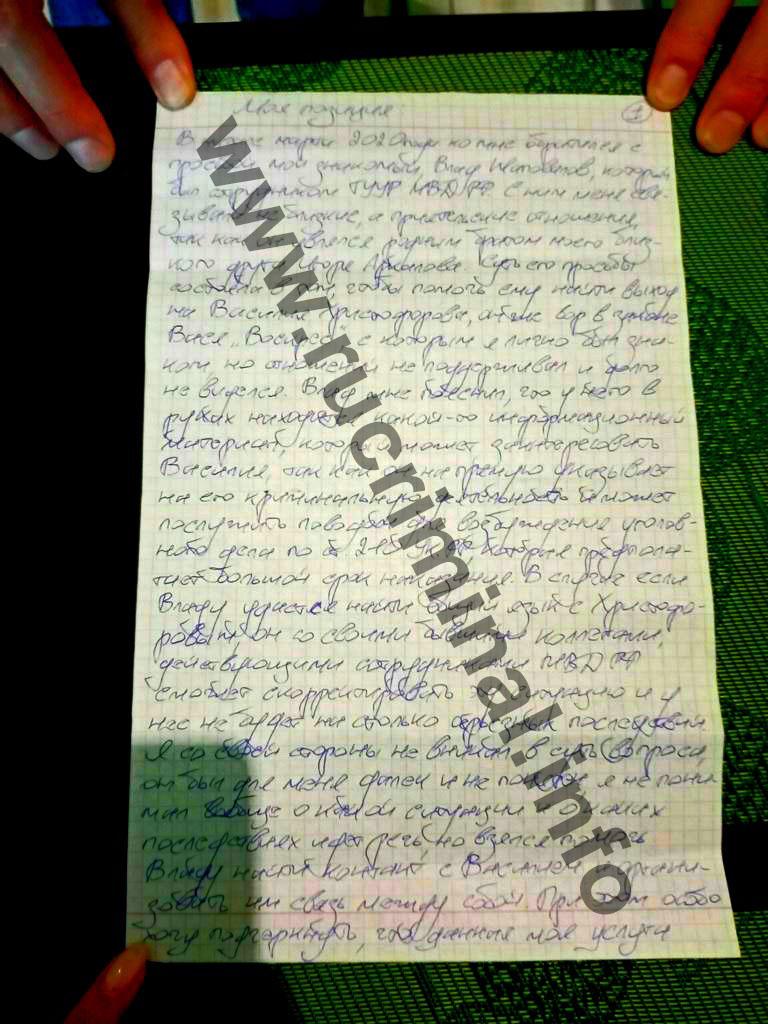 Моя позиция:
1
В марте 2020 года ко мне обратился с
просьбой мой знакомый, Влад, который
был сотрудником ГУУР МВД РФ. С ним меня свя-
зывали не близкие, а приятельские отношения,
так как он являлся родным братом моего близ-
кого друга Суть его просьбы
состояла в том, чтобы помочь ему найти выход
на Василия Христофорова, он же вор в законе
Вася „Воскрес", с которым я лично был зна-
ком, но отношений не поддерживал и долго
не виделся. Влад мне пояснил, что у него в
руках находится какой-то информационный
материал, который может заинтересовать
Василия, так как он на прямую указывает
на его криминальную деятельность и может
послужить поводом для возбуждения уголов-
ного дела по ст. 210 УК РФ, которая предпола-
гает большой срок наказания. В случае если
Владу удастся найти общий язык с Христофо-
ровым, он со своими бывшими коллегами,
действующими сотрудниками МВД РФ
сможет скорректировать эту ситуацию и у
нас не будет ни столько серьезных последствий.
Я со своей стороны не вникал в суть вопроса,
он был для меня далек и не понятен, я не пони-
мал вообще о какой ситуации и о каких
последствиях идет речь, но взялся помочь
Владу найти контакт с Василием и органи-
зовать им связь между собой. При этом особо
хочу подчеркнуть, что данные мои услуги
www.rucriminal.info